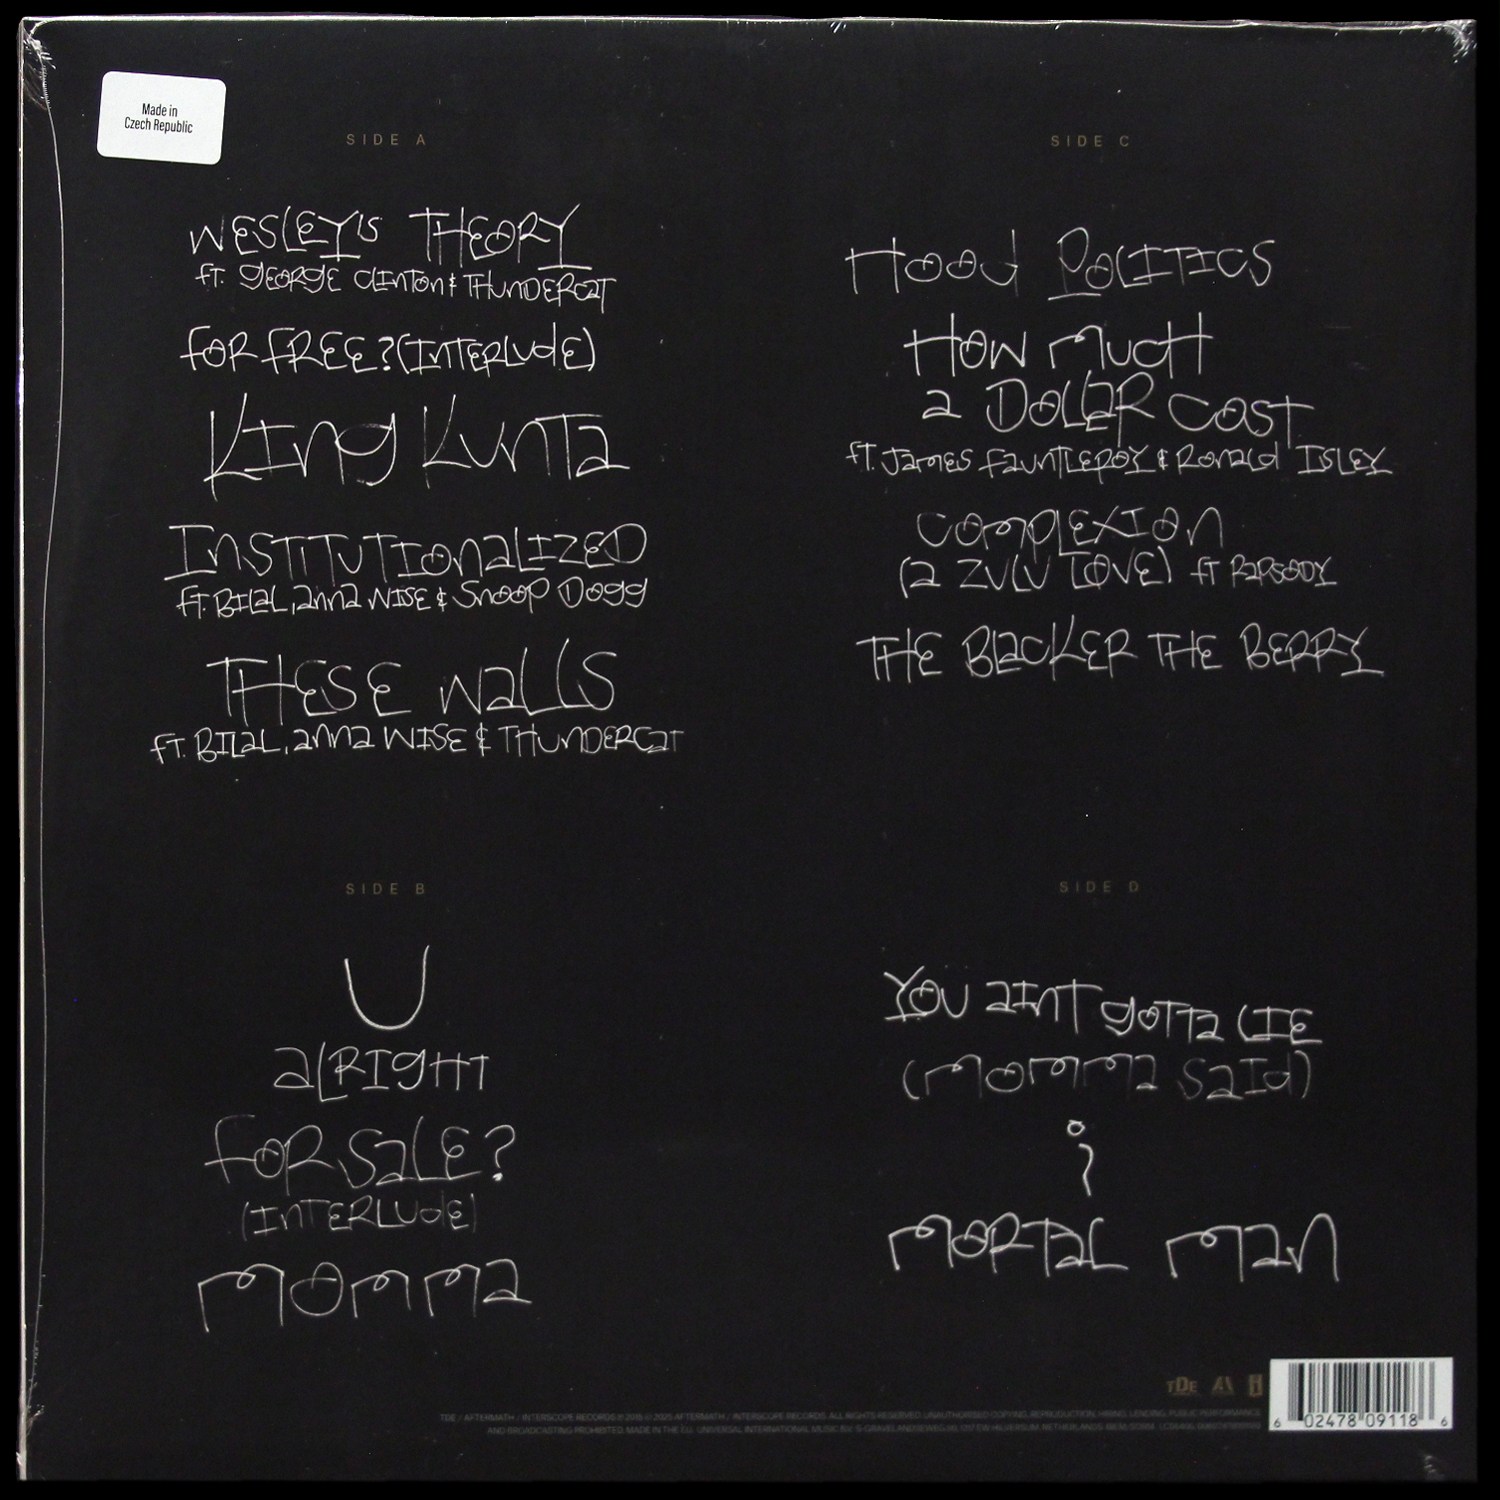 Made in
Czech Republic
SIDE A
WESLEY'S THEORY
FT. GEORGE CLINTON & THUNDERCAT
FOR FREE? (INTERLUDE)
KING KUNTA
INSTITUTIONALIZED
FT. BILAL, ANNA WISE & SNOOP DOGG
THESE WALLS
FT. BILAL, ANNA WISE & THUNDERCAT
SIDE B
U
ALRIGHT
FOR SALE?
(INTERLUDE)
MOMMA
SIDE C
HOOD POLITICS
HOW MUCH
A DOLLAR COST
FT. JAMES FAUNTLEROY & RONALD ISLEY
COMPLEXION
(A ZULU LOVE) FT RAPSODY
THE BLACKER THE BERRY
SIDE D
YOU AINT GOTTA LIE
(MOMMA SAID)
¿
MORTAL MAN
TDE
6 02478 09118 6
TDE / AFTERMATH / INTERSCOPE RECORDS ℗ 2015 © 2025 AFTERMATH / INTERSCOPE RECORDS. ALL RIGHTS RESERVED. UNAUTHORISED COPYING, REPRODUCTION, HIRING, LENDING, PUBLIC PERFORMANCE
AND BROADCASTING PROHIBITED. MADE IN THE E.U. UNIVERSAL INTERNATIONAL MUSIC B.V.